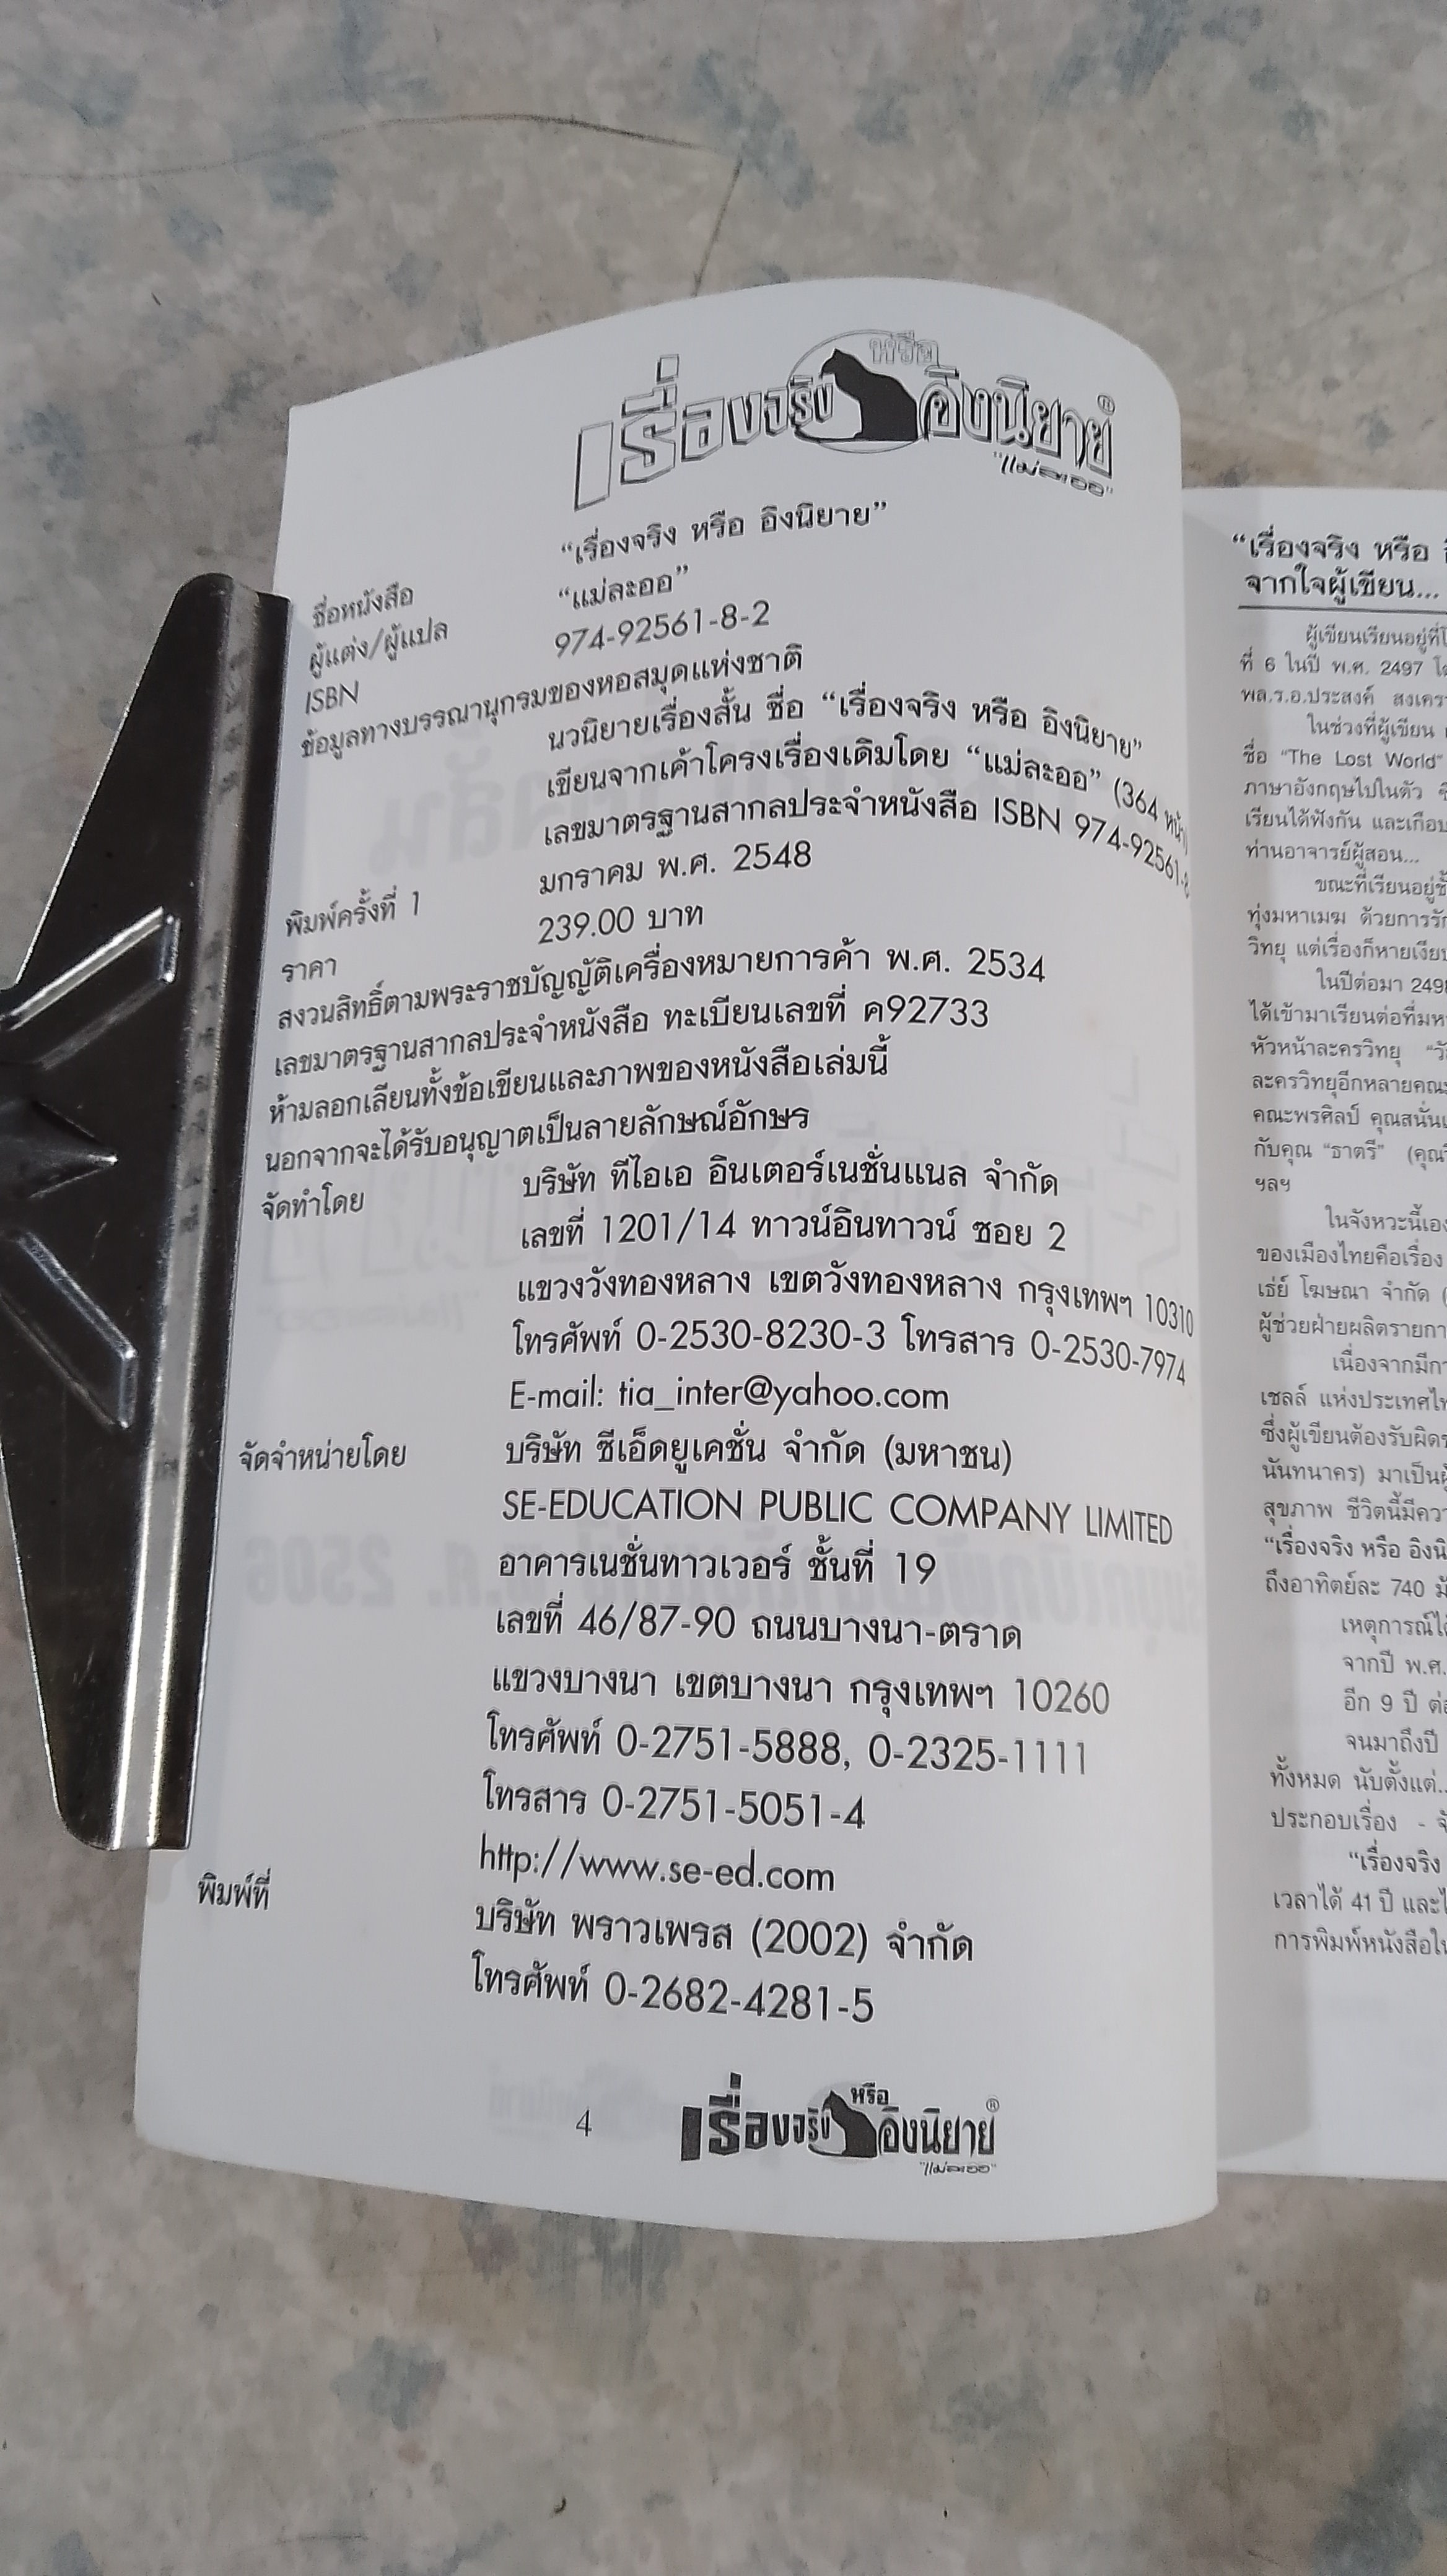 เรื่องจริง หรือ อิงนิยาย ®
"แม่ละออ"
ชื่อหนังสือ “เรื่องจริง หรือ อิงนิยาย”
ผู้แต่ง/ผู้แปล “แม่ละออ”
ISBN 974-92561-8-2
ข้อมูลทางบรรณานุกรมของหอสมุดแห่งชาติ
นวนิยายเรื่องสั้น ชื่อ “เรื่องจริง หรือ อิงนิยาย”
เขียนจากเค้าโครงเรื่องเดิมโดย “แม่ละออ” (364 หน้า)
เลขมาตรฐานสากลประจำหนังสือ ISBN 974-92561-8
พิมพ์ครั้งที่ 1 มกราคม พ.ศ. 2548
ราคา 239.00 บาท
สงวนสิทธิ์ตามพระราชบัญญัติเครื่องหมายการค้า พ.ศ. 2534
เลขมาตรฐานสากลประจำหนังสือ ทะเบียนเลขที่ ค92733
ห้ามลอกเลียนทั้งข้อเขียนและภาพของหนังสือเล่มนี้
นอกจากจะได้รับอนุญาตเป็นลายลักษณ์อักษร
จัดทำโดย บริษัท ทีไอเอ อินเตอร์เนชั่นแนล จำกัด
เลขที่ 1201/14 ทาวน์อินทาวน์ ซอย 2
แขวงวังทองหลาง เขตวังทองหลาง กรุงเทพฯ 10310
โทรศัพท์ 0-2530-8230-3 โทรสาร 0-2530-7974
E-mail: tia_inter@yahoo.com
จัดจำหน่ายโดย บริษัท ซีเอ็ดยูเคชั่น จำกัด (มหาชน)
SE-EDUCATION PUBLIC COMPANY LIMITED
อาคารเนชั่นทาวเวอร์ ชั้นที่ 19
เลขที่ 46/87-90 ถนนบางนา-ตราด
แขวงบางนา เขตบางนา กรุงเทพฯ 10260
โทรศัพท์ 0-2751-5888, 0-2325-1111
โทรสาร 0-2751-5051-4
http://www.se-ed.com
พิมพ์ที่ บริษัท พราวเพรส (2002) จำกัด
โทรศัพท์ 0-2682-4281-5
4 เรื่องจริง หรือ อิงนิยาย ®
"แม่ละออ"
“เรื่องจริง หรือ
จากใจผู้เขียน...
ผู้เขียนเรียนอยู่ที่
ที่ 6 ในปี พ.ศ. 2497
พล.ร.อ.ประสงค์
ในช่วงที่ผู้เขียน
ชื่อ “The Lost World”
ภาษาอังกฤษไปในตัว
เรียนได้ฟังกัน และเกือบ
ท่านอาจารย์ผู้สอน...
ขณะที่เรียนอยู่ชั้
ทุ่งมหาเมฆ ด้วยการรั
วิทยุ แต่เรื่องก็หายเงียบ
ในปีต่อมา 249
ได้เข้ามาเรียนต่อที่มห
หัวหน้าละครวิทยุ
ละครวิทยุอีกหลายคณะ
คณะพรศิลป์ คุณสนั่น
กับคุณ “ธาตรี” (คุณ
ฯลฯ
ในจังหวะนี้เอง
ของเมืองไทยคือเรื่อง
เธ่ย์ โฆษณา จำกัด (
ผู้ช่วยฝ่ายผลิตรายกา
เนื่องจากมีกา
เชลล์ แห่งประเทศไ
ซึ่งผู้เขียนต้องรับผิด
นันทนาคร) มาเป็น
สุขภาพ ชีวิตนี้มีคว
“เรื่องจริง หรือ อิงนิ
ถึงอาทิตย์ละ 740
เหตุการณ์ได้
จากปี พ.ศ.
อีก 9 ปี
จนมาถึงปี
ทั้งหมด นับตั้งแต่..
ประกอบเรื่อง -
“เรื่องจริง
เวลาได้ 41 ปี และ
การพิมพ์หนังสือใ